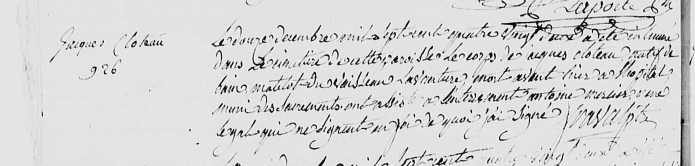 Laporte
Jacques Cloteau
926
Le douze decembre mil sept cent quatre vingt deux a eté inhumé
dans le cimetiere de cette paroisse le corps de jacques cloteau natif de
matelot du vaisseau mort avant hier a l'hopital
muni des sacrements ont assisté a l'interrement antoine mercier rene
legal qui ne signent en foi de quoi j'ai signé